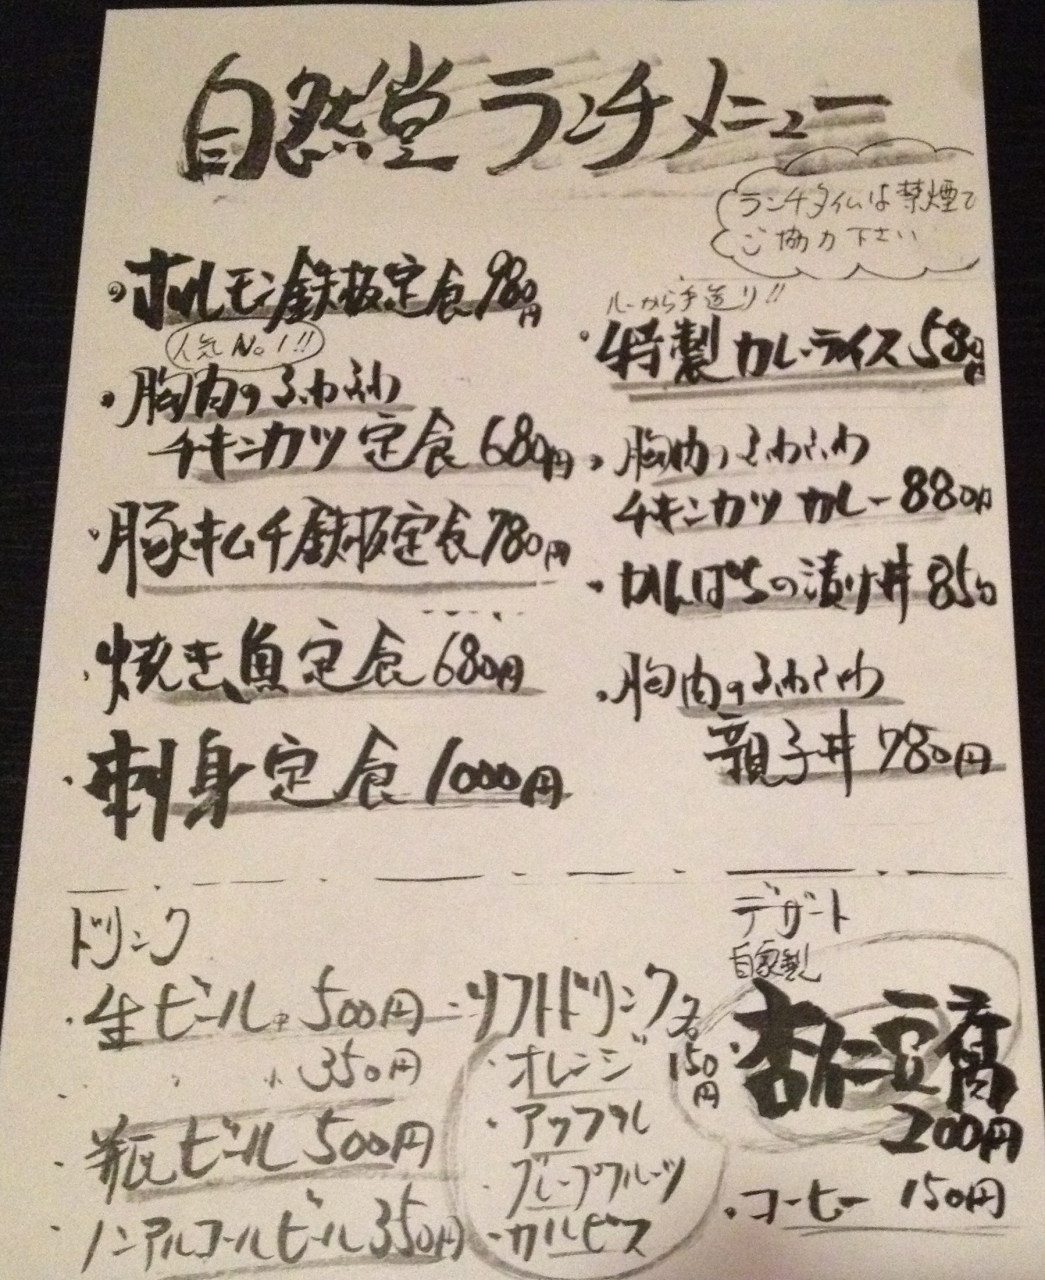 自然堂 ランチメニュー
ランチタイムは禁煙で
ご協力下さい
・ホルモン鉄板定食 980円
人気No.1!!
・胸肉のふわふわ
チキンカツ定食 680円
・豚キムチ鉄板定食 780円
・焼き魚定食 680円
・刺身定食 1000円
ルーから手造り!!
・特製カレーライス 580円
・胸肉のふわふわ
チキンカツカレー 880円
・かんぱちの漬け丼 850
・胸肉のふわふわ
親子丼 780円
ドリンク
・生ビール 中 500円
・〃 小 350円
・瓶ビール 500円
・ノンアルコールビール 350円
・ソフトドリンク各
150円
・オレンジ
・アップル
・グレープフルーツ
・カルピス
デザート
自家製
・杏仁豆腐
200円
・コーヒー 150円